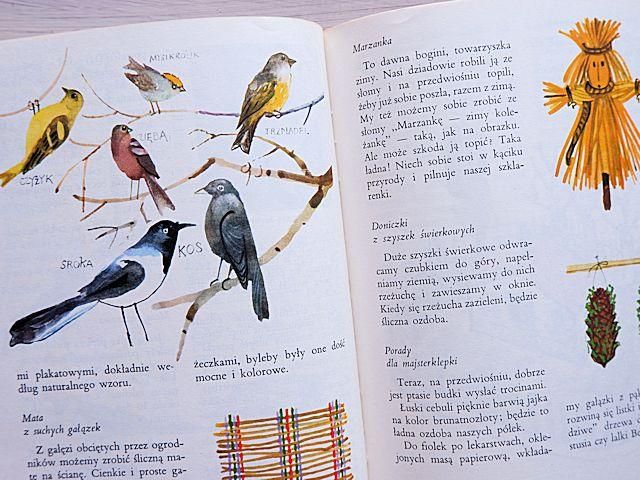 MYSIKRÓLIK
CZYŻYK
ZIĘBA
TRZNADEL
SROKA
KOS
mi plakatowymi, dokładnie we-
dług naturalnego wzoru.
żeczkami, byleby były one dość
mocne i kolorowe.
Mata
z suchych gałązek
Z gałęzi obciętych przez ogrod-
ników możemy zrobić śliczną ma-
tę na ścianę. Cienkie i proste ga-
Marzanka
To dawna bogini, towarzyszka
zimy. Nasi dziadowie robili ją ze
słomy i na przedwiośniu topili,
żeby już sobie poszła, razem z zimą.
My też możemy sobie zrobić ze
słomy „Marzankę — zimy kole-
żankę” — taką, jak na obrazku.
Ale może szkoda ją topić? Taka
ładna! Niech sobie stoi w kąciku
przyrody i pilnuje naszej szkla-
renki.
Doniczki
z szyszek świerkowych
Duże szyszki świerkowe odwra-
camy czubkiem do góry, napeł-
niamy ziemią, wysiewamy do nich
rzeżuchę i zawieszamy w oknie.
Kiedy się rzeżucha zazieleni, będzie
śliczna ozdoba.
Porady
dla majsterklepki
Teraz, na przedwiośniu, dobrze
jest ptasie budki wysłać trocinami.
Łuski cebuli pięknie barwią jajka
na kolor brunatnozłoty; będzie to
ładna ozdoba naszych półek.
Do fiolek po lekarstwach, okle-
jonych masą papierową, wkłada-
my gałązki z pą
rozwiną się listki
dziwe” drzewa d
stusia czy lalki Be